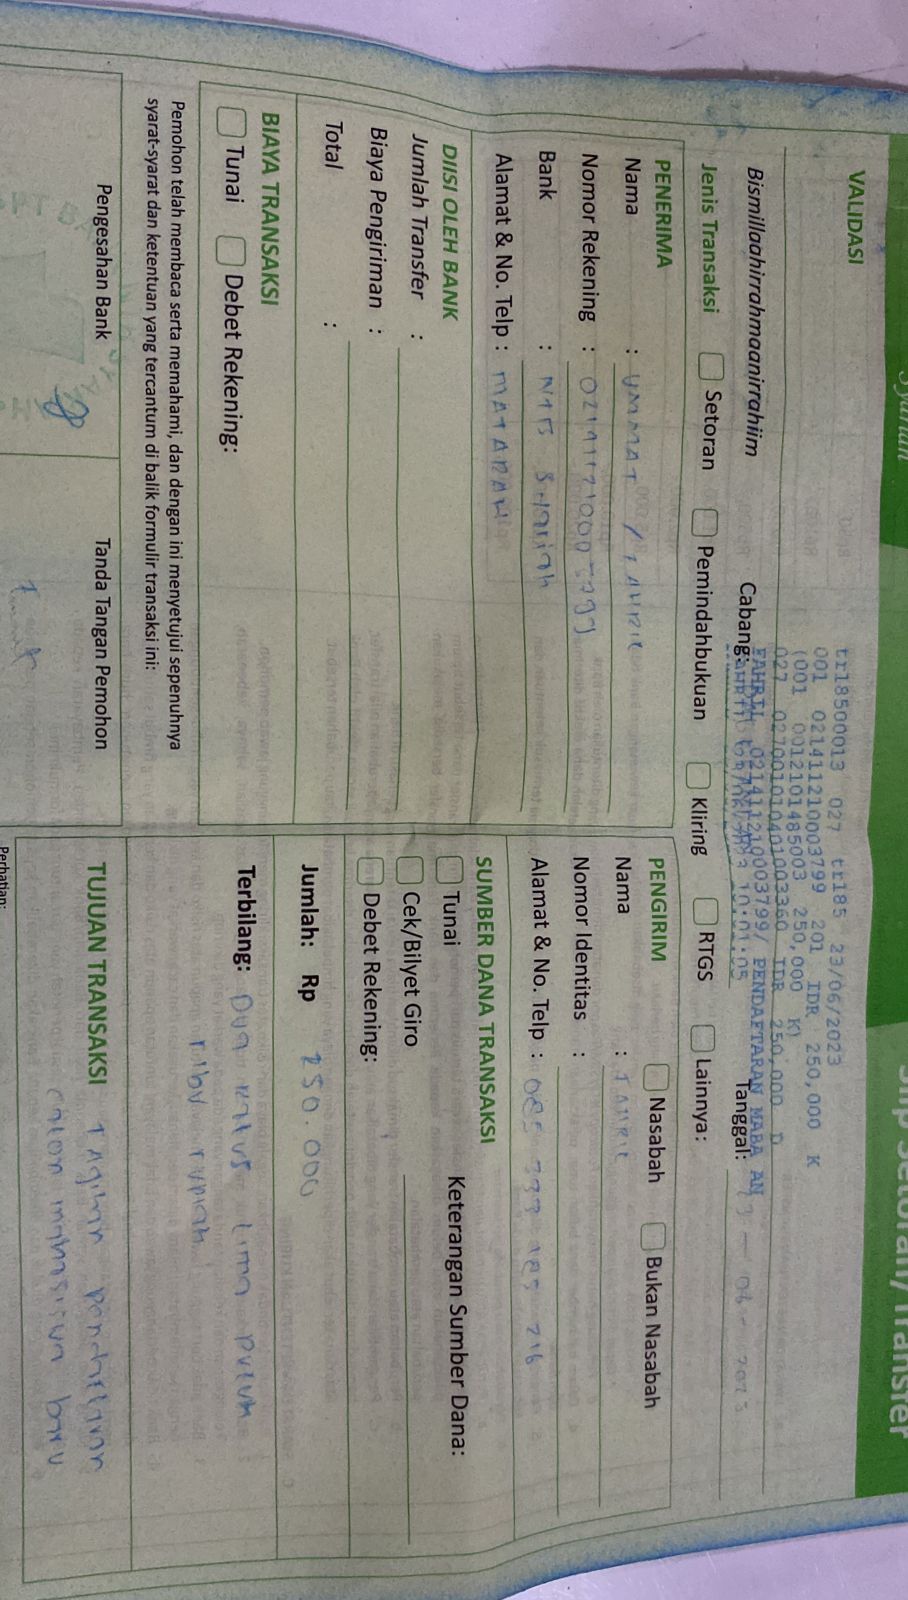 Syariah
Slip Setoran/Transfer
VALIDASI
tr18500013 027 tr185 23/06/2023
001 021411210003799 201 IDR 250,000 K
(001 0012101485003 250,000 K)
027 0270010104010003360 IDR 250,000 D
FAHRIL 021411210003799/ PENDAFTARAN MABA AN
Bismillaahirrahmaanirrahiim
Cabang:
Tanggal:
Jenis Transaksi
Setoran
Pemindahbukuan
Kliring
RTGS
Lainnya:
PENERIMA
Nama : UMMAT /
Nomor Rekening :
Bank : NTB Syariah
Alamat & No. Telp : MATARAM
PENGIRIM
Nasabah
Bukan Nasabah
Nama :
Nomor Identitas :
Alamat & No. Telp :
DIISI OLEH BANK
Jumlah Transfer :
Biaya Pengiriman :
Total :
SUMBER DANA TRANSAKSI
Keterangan Sumber Dana:
Tunai
Cek/Bilyet Giro
Debet Rekening:
BIAYA TRANSAKSI
Tunai
Debet Rekening:
Jumlah: Rp 250.000
Terbilang: Dua ratus lima puluh
ribu rupiah
Pemohon telah membaca serta memahami, dan dengan ini menyetujui sepenuhnya
syarat-syarat dan ketentuan yang tercantum di balik formulir transaksi ini:
Pengesahan Bank
Tanda Tangan Pemohon
TUJUAN TRANSAKSI
Tagihan pendaftaran
calon mahasiswa baru
Perhatian: